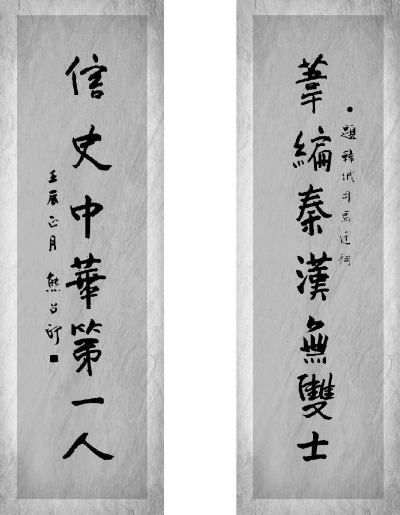 題韓城司馬遷祠
葦編秦漢無雙士
信史中華第一人
壬辰正月 熊召政